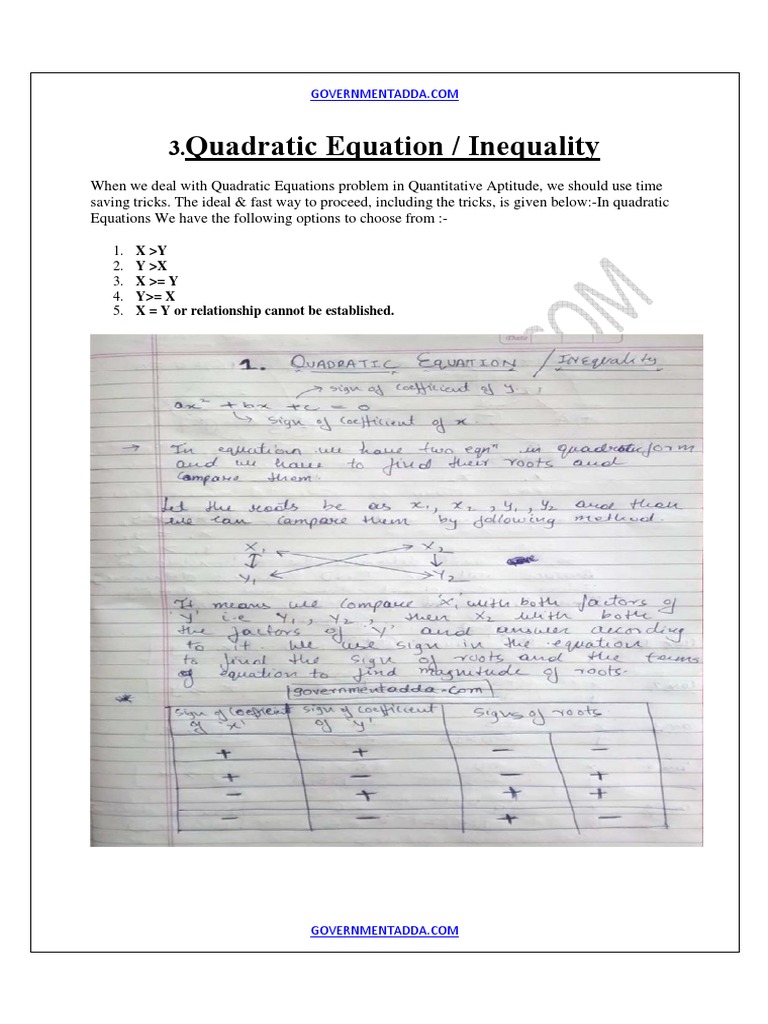 GOVERNMENTADDA.COM
3.Quadratic Equation / Inequality
When we deal with Quadratic Equations problem in Quantitative Aptitude, we should use time
saving tricks. The ideal & fast way to proceed, including the tricks, is given below:-In quadratic
Equations We have the following options to choose from :-
1. X >Y
2. Y >X
3. X >= Y
4. Y>= X
5. X = Y or relationship cannot be established.
.COM
1. QUADRATIC EQUATION / Inequality
→ sign of coefficient of y.
ax² + bx + c = 0
↳ sign of coefficient of x.
→ In equation we have two eqn" in quadratic form
and we have to find their roots and
compare them.
Let the roots be as x₁, x₂, y₁, y₂ and than
we can compare them by following method.
X₁ X₂
Y₁ Y₂
It means we compare 'X₁' with both factors of
y i.e Y₁, Y₂, then X₂ with both
the factors of 'Y' and answer according
to it. We use sign in the equation
to find the sign of roots and the terms
of equation to find magnitude of roots.
governmentadda.com
sign of coefficient sign of coefficient signs of roots
of 'x' of 'y'
+ + − −
+ − − +
− + + +
− − + −
GOVERNMENTADDA.COM